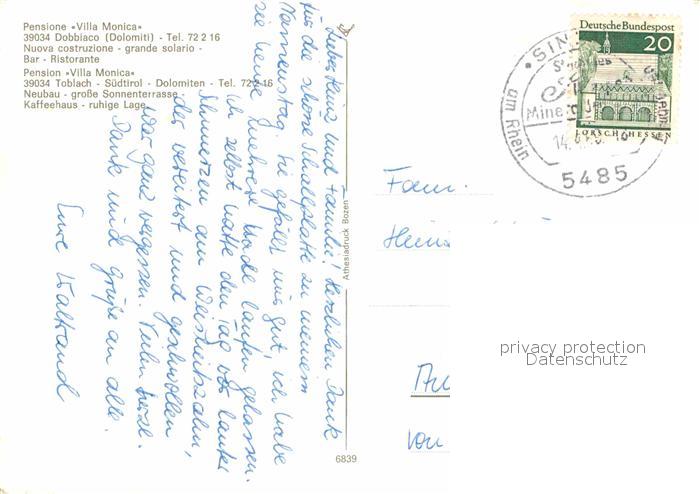 Pensione «Villa Monica»
39034 Dobbiaco (Dolomiti) - Tel. 72 2 16
Nuova costruzione - grande solario -
Bar - Ristorante
Pension »Villa Monica«
39034 Toblach - Südtirol - Dolomiten - Tel. 72 2 16
Neubau - große Sonnenterrasse
Kaffeehaus - ruhige Lage
Liebe Heins und Familie! Herzlichen Dank
für die schöne Schallplatte zu meinem
Namenstag. Sie gefällt uns gut, ich habe
sie heute mehrere Male laufen gelassen.
Ich selbst hatte den Tag vor lauter
Schmerzen am Weisheitszahn,
der vereitert und geschwollen
war ganz vergessen. Vielen
Dank und Grüße an alle.
Eure Waltraud
Athesiadruck Bozen
6839
Deutsche Bundespost
20
LORSCH/HESSEN
SINZ
am Rhein
Mine
14.
5485
Fam.
Heins
von
privacy protection
Datenschutz